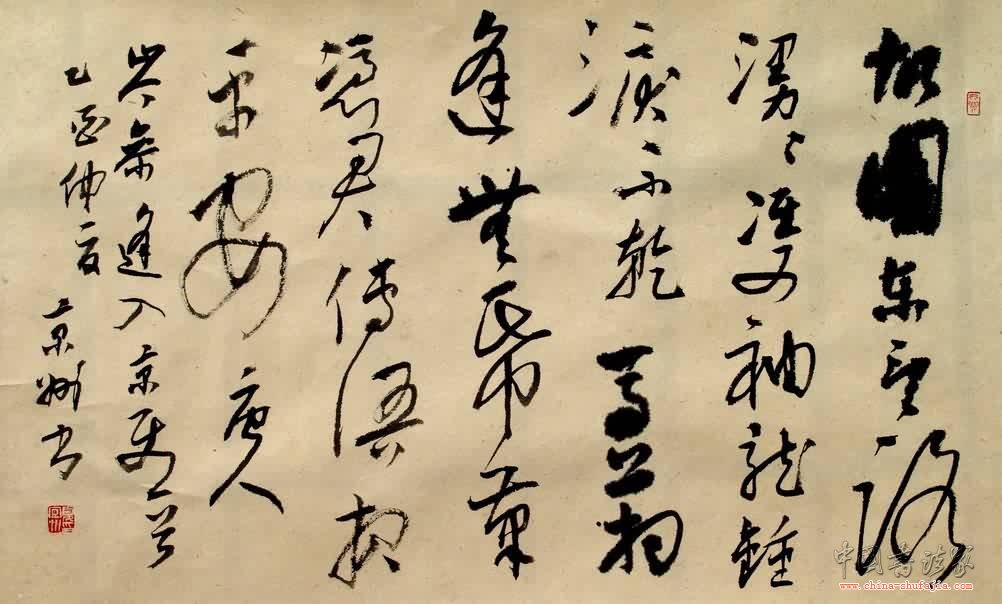 故園東望路
漫〻雙袖龍鍾
淚不乾馬上相
逢無帋筆
憑君傳語報
平安唐人
岑參逢入京使一首
乙酉仲夏京書
中国书法家
www.china-shufajia.com